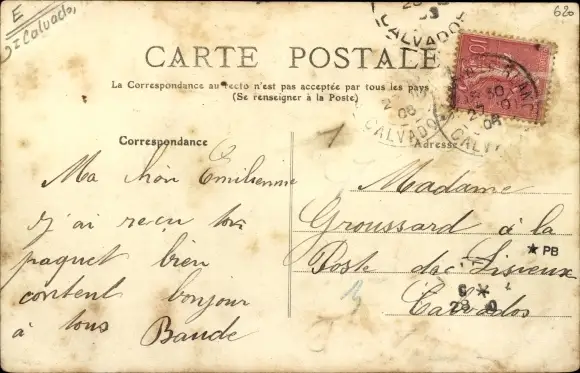 E
Calvados
620
CALVADOS
CARTE POSTALE
La Correspondance au recto n'est pas acceptée par tous les pays
(Se renseigner à la Poste)
CALVADOS
06
Correspondance
Adresse
Ma Emilienne
j'ai recu ton
paquet bien
content bonjour
à tous Baude
Madame
Groussard à la
Poste de Lisieux
Calvados
★ PB